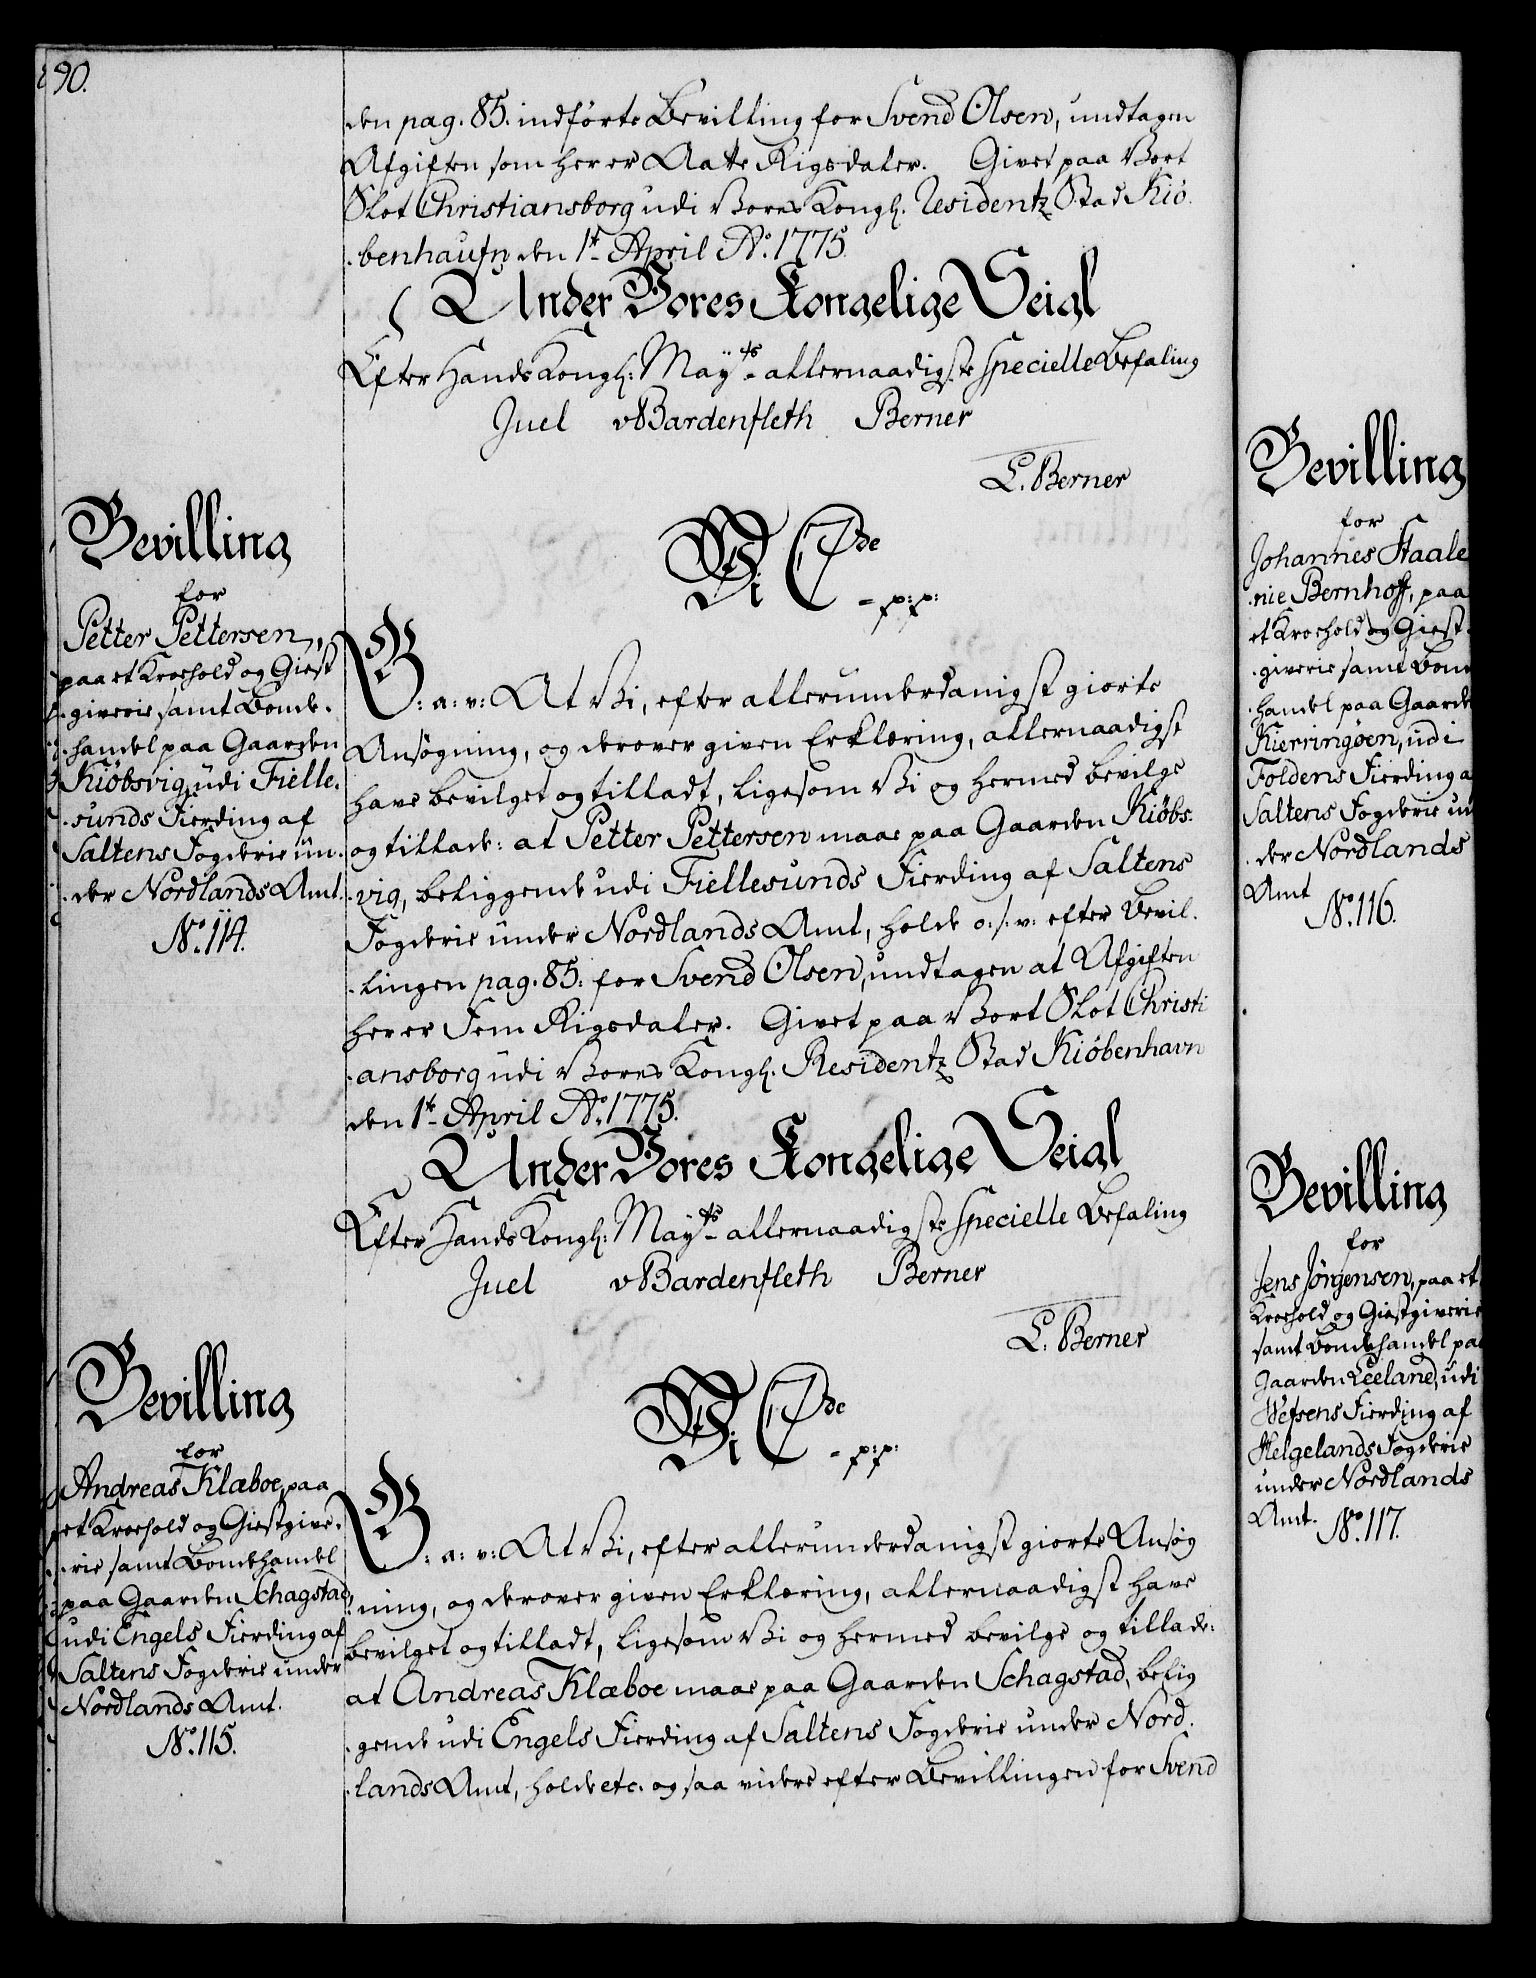 90.
den pag. 85. indførte Bevilling for Svend Olsen, undtagen
Afgiften som her er Aatte Rigsdaler. Givet paa Vort
Slot Christiansborg udi Vores Kongl. Residentz Stad Kiö-
-benhaufn den 1ste April Ao. 1775.
Under Vores Kongelige Seigl
Efter Hands Kongl: Mayts allernaadigste specielle Befaling
Juel vBardenfleth Berner
L. Berner
Bevilling
for
Petter Pettersen,
paa et Kroehold og Giest
-giverie samt Bonde-
-handel paa Gaarden
Kiöbsvig, udi Fielle-
-sunds Fierding af
Saltens Fogderie un-
-der Nordlands Amt.
No. 114.
Vi C 7de
- p: p:
G: a: v: At Vi, efter allerunderdanigst giorte
Ansøgning, og derover given Erklæring, allernaadigst
have bevilget og tilladt, ligesom Vi og hermed bevilge
og tillade: at Petter Pettersen maae paa Gaarden Kiöbs-
-vig, beliggende udi Fiellesunds Fierding af Saltens
Fogderie under Nordlands Amt, holde o: s: v: efter Bevil-
-lingen pag. 85: for Svend Olsen, undtagen at Afgiften
her er Fem Rigsdaler. Givet paa Vort Slot Christi
-ansborg udi Vores Kongl. Residentz Stad Kiöbenhavn
den 1te April Ao. 1775.
Under Vores Kongelige Seigl
Efter Hands Kongl: Mayts allernaadigste specielle Befaling
Juel vBardenfleth Berner
L. Berner
Bevilling
for
Andreas Klæboe, paa
et Kroehold og Giestgive-
-rie samt Bondehandel
paa Gaarden Schagstad,
udi Engels Fierding af
Saltens Fogderie under
Nordlands Amt.
No. 115.
Vi C 7de
- p: p:
G: a: v: At Vi, efter allerunderdanigst giorte Ansøg
-ning, og derover given Erklæring, allernaadigst have
bevilget og tilladt, ligesom Vi og hermed bevilge og tillade:
at Andreas Klæboe maae paa Gaarden Schagstad, belig
-gende udi Engels Fierding af Saltens Fogderie under Nord-
-lands Amt, holde etc. og saa videre efter Bevillingen for Svend
Bevilling
for
Johannes Staale
-nie Bernhoff, paa
et Kroehold og Giest-
-giverie samt Bon
-handel paa Gaarde
Kierringøen, udi
Foldens Fierding a
Saltens Fogderie un
-der Nordlands
Amt
No. 116.
Bevilling
for
Jens Jörgensen, paa et
Kroehold og Giestgiverie
samt Bondehandel paa
Gaarden Leeland, udi
Wefsens Fierding af
Helgelands Fogderie
under Nordlands
Amt.
No. 117.